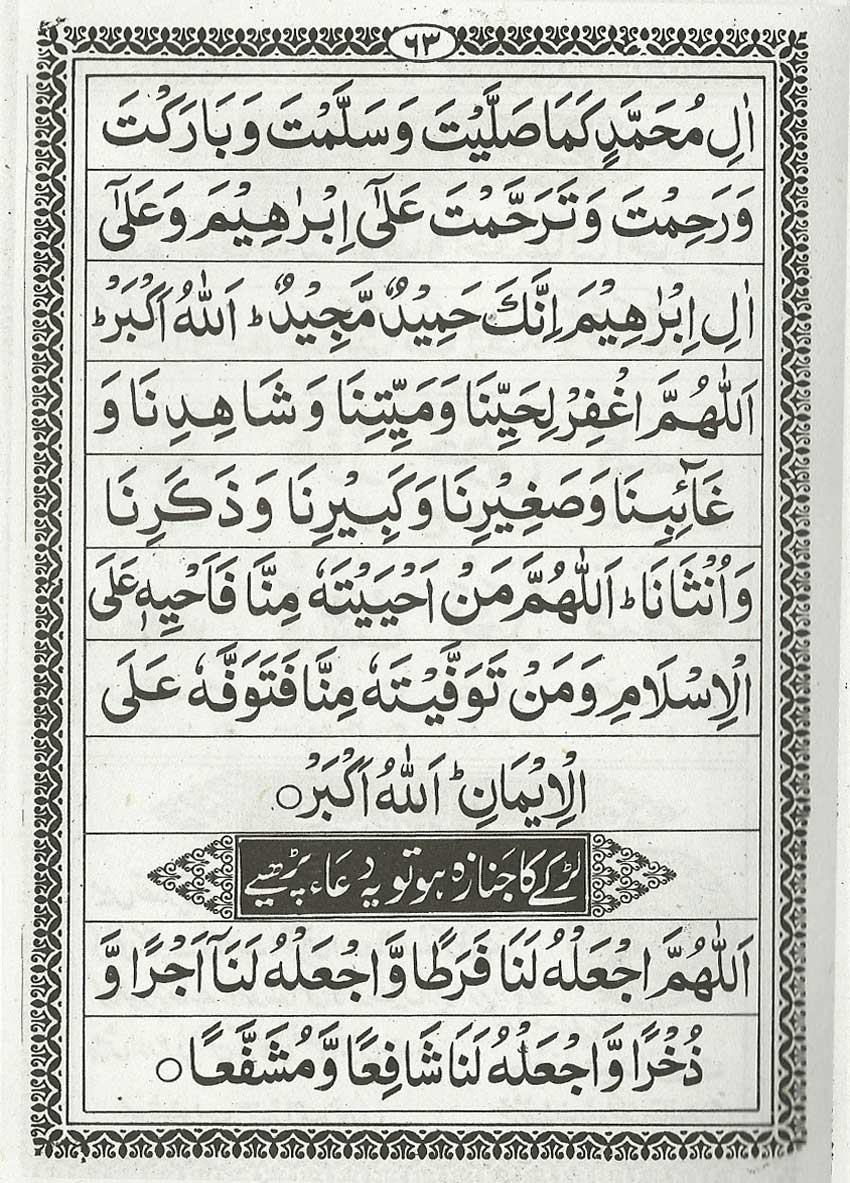 ٦٣
اٰلِ مُحَمَّدٍ كَمَا صَلَّيْتَ وَسَلَّمْتَ وَبَارَكْتَ
وَرَحِمْتَ وَتَرَحَّمْتَ عَلٰٓى اِبْرٰهِيْمَ وَعَلٰٓى
اٰلِ اِبْرٰهِيْمَ اِنَّكَ حَمِيْدٌ مَّجِيْدٌ ؕ اَللّٰهُ اَكْبَرْ ؕ
اَللّٰهُمَّ اغْفِرْ لِحَيِّنَا وَمَيِّتِنَا وَشَاهِدِنَا وَ
غَآئِبِنَا وَصَغِيْرِنَا وَكَبِيْرِنَا وَذَكَرِنَا
وَاُنْثَانَا ؕ اَللّٰهُمَّ مَنْ اَحْيَيْتَهٗ مِنَّا فَاَحْيِهٖ عَلَى
الْاِسْلَامِ وَمَنْ تَوَفَّيْتَهٗ مِنَّا فَتَوَفَّهٗ عَلَى
الْاِيْمَانِ ؕ اَللّٰهُ اَكْبَرْ ○
لڑکے کا جنازہ ہو تو یہ دعاء پڑھیے
اَللّٰهُمَّ اجْعَلْهُ لَنَا فَرَطًا وَّاجْعَلْهُ لَنَآ اَجْرًا وَّ
ذُخْرًا وَّاجْعَلْهُ لَنَا شَافِعًا وَّمُشَفَّعًا ○